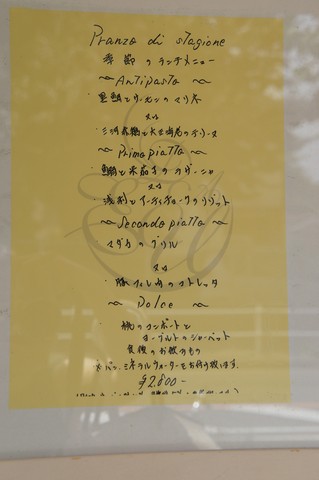 Pranzo di stagione
季節のランチメニュー
～ Antipasto ～
・黒鯛とサーモンのマリネ
又は
・三河赤鶏と のテリーヌ
～ Primo piatto ～
・鯛と 茄子のラザーニャ
又は
・浅利と のリゾット
～ Secondo piatto ～
マダカのグリル
又は
・豚フィレ肉のコトレッタ
～ Dolce ～
桃のコンポートと
ヨーグルトのシャーベット
食後のお飲みもの
※パン、ミネラルウォーターをお付け致します。
¥2,800-